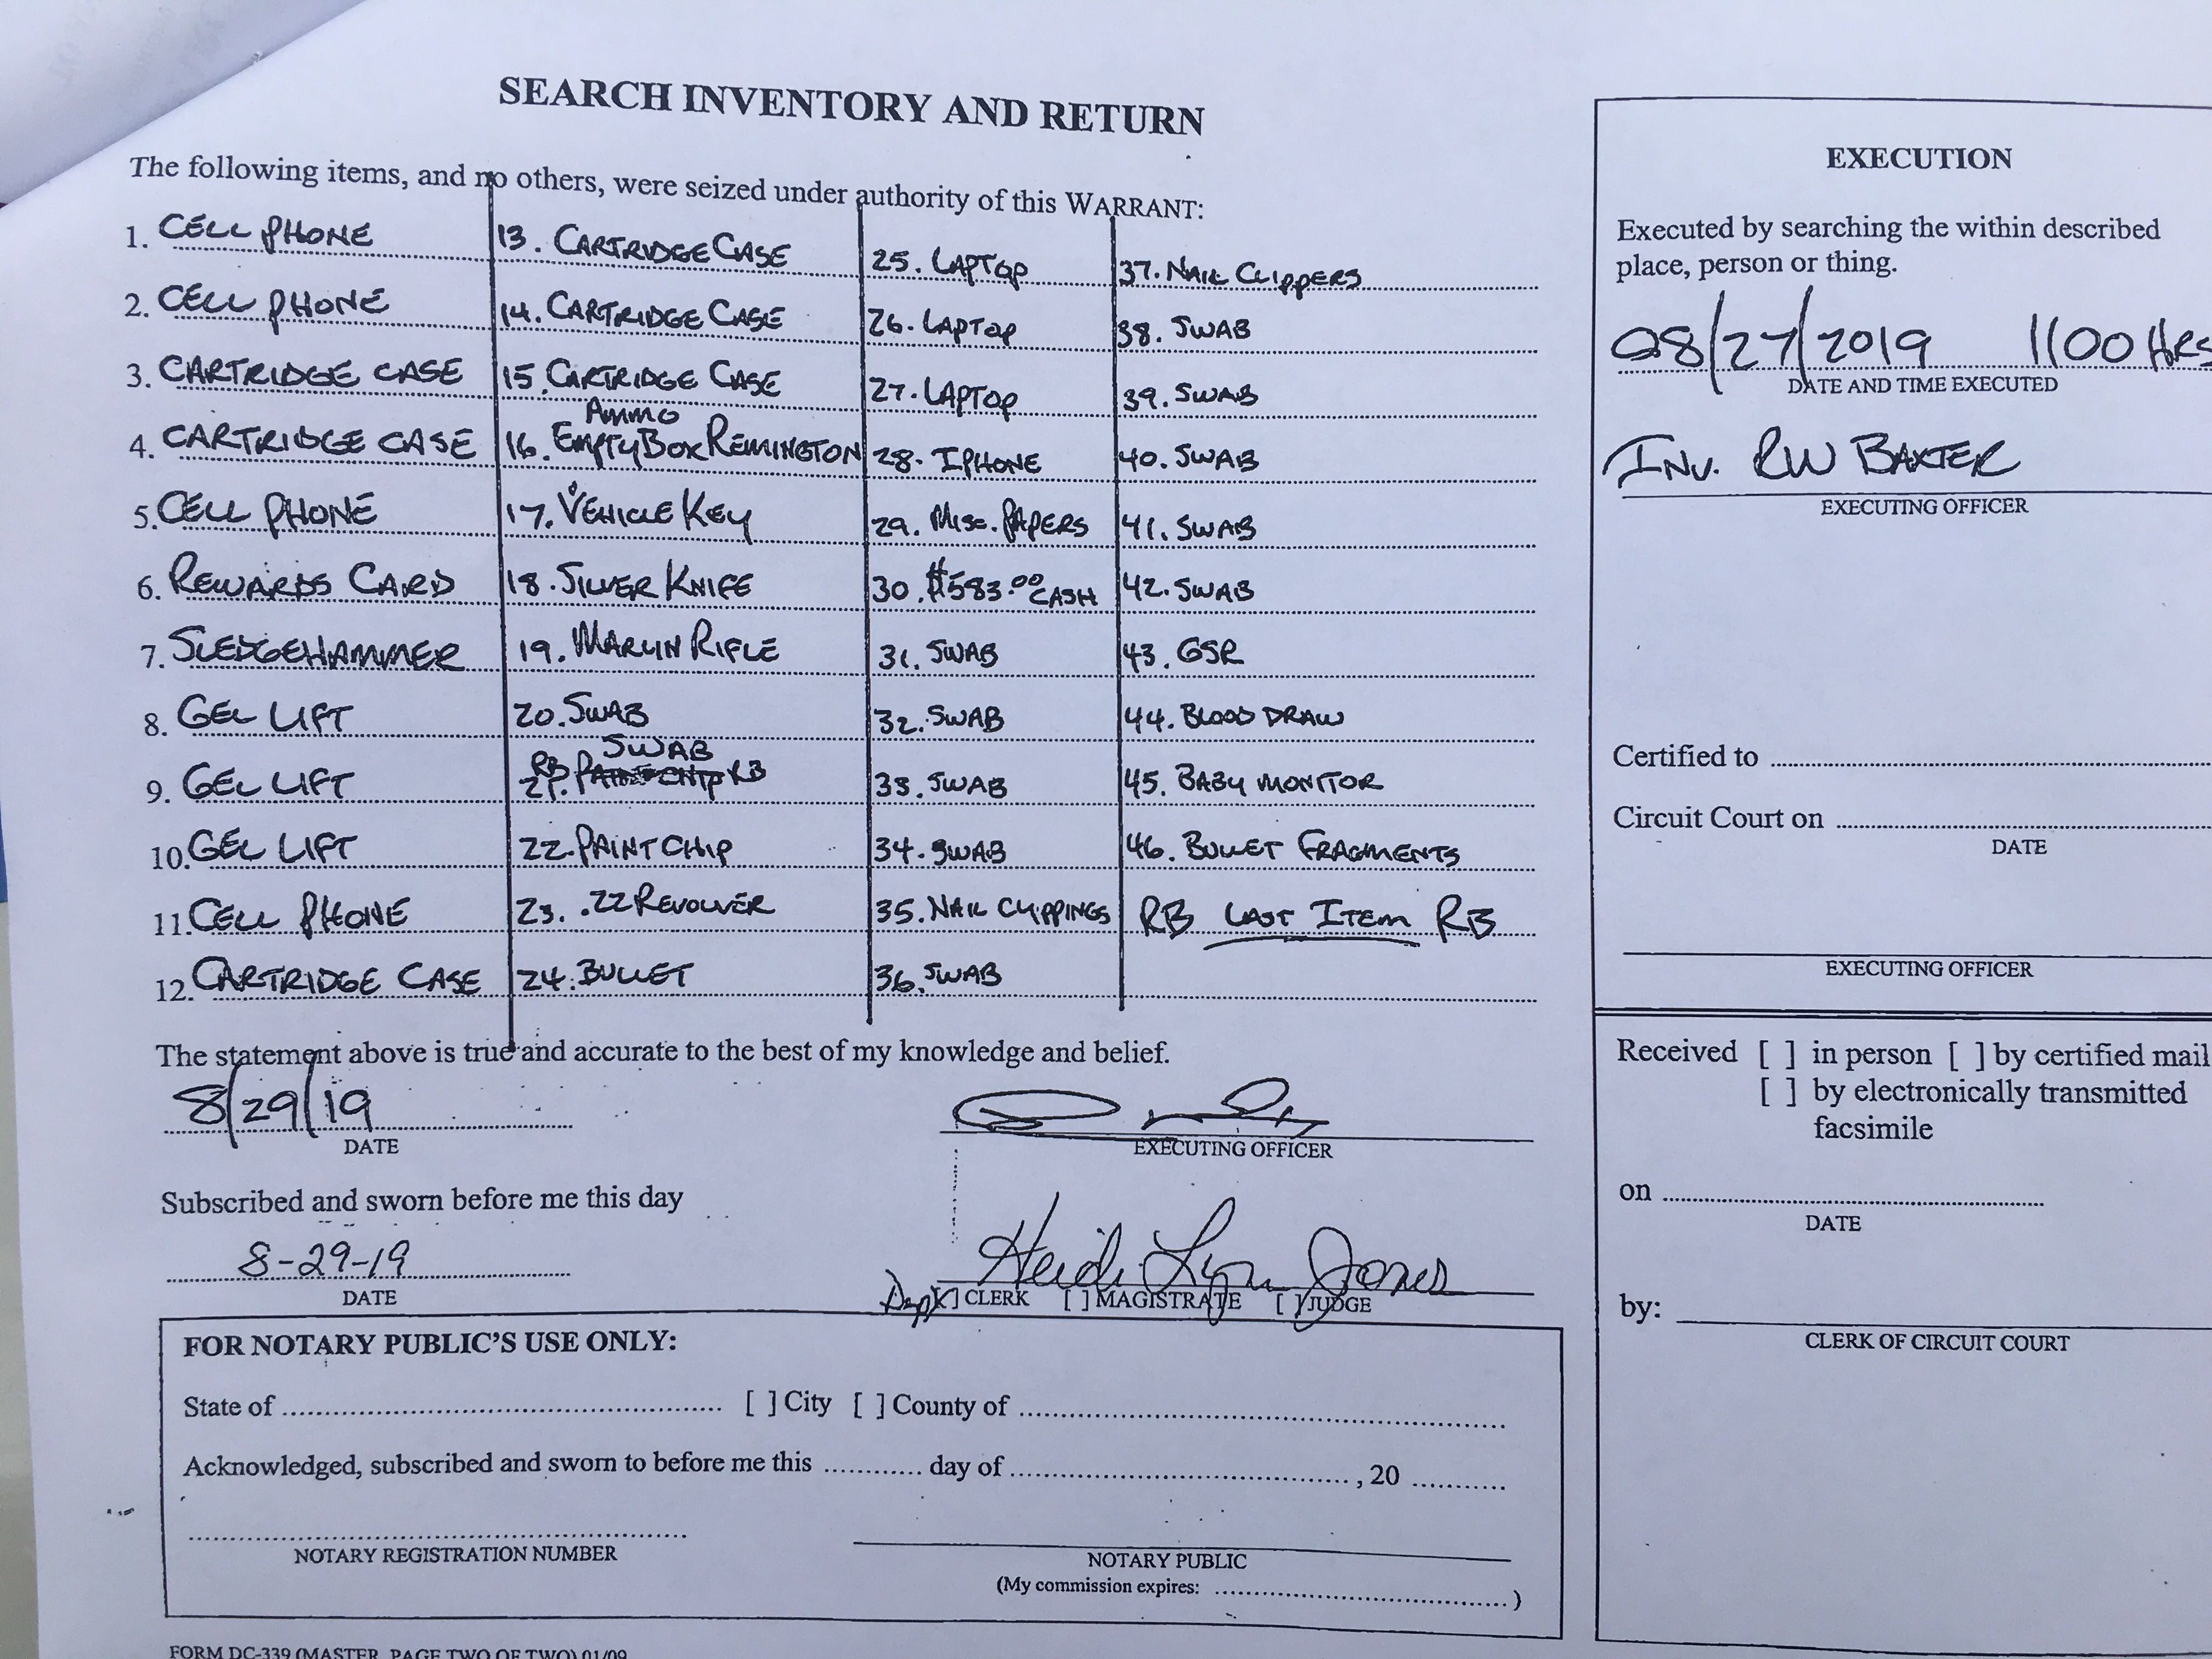 SEARCH INVENTORY AND RETURN
The following items, and no others, were seized under authority of this WARRANT:
1. CELL PHONE
2. CELL PHONE
3. CARTRIDGE CASE
4. CARTRIDGE CASE
5. CELL PHONE
6. REWARDS CARD
7. SLEDGEHAMMER
8. GEL LIFT
9. GEL LIFT
10. GEL LIFT
11. CELL PHONE
12. CARTRIDGE CASE
13. CARTRIDGE CASE
14. CARTRIDGE CASE
15. CARTRIDGE CASE
AMMO
16. EMPTY BOX REMINGTON
17. VEHICLE KEY
18. SILVER KNIFE
19. MARLIN RIFLE
20. SWAB
SWAB
RB 21. PAINT CHIP RB
22. PAINT CHIP
23. .22 REVOLVER
24. BULLET
25. LAPTOP
26. LAPTOP
27. LAPTOP
28. IPHONE
29. MISC. PAPERS
30. $583.00 CASH
31. SWAB
32. SWAB
33. SWAB
34. SWAB
35. NAIL CLIPPINGS
36. SWAB
37. NAIL CLIPPERS
38. SWAB
39. SWAB
40. SWAB
41. SWAB
42. SWAB
43. GSR
44. BLOOD DRAW
45. BABY MONITOR
46. BULLET FRAGMENTS
RB LAST ITEM RB
The statement above is true and accurate to the best of my knowledge and belief.
8/29/19
DATE
EXECUTING OFFICER
Subscribed and sworn before me this day
8-29-19
DATE
Heidi Lyn Jones
Dep [X] CLERK [ ] MAGISTRATE [ ] JUDGE
FOR NOTARY PUBLIC'S USE ONLY:
State of [ ] City [ ] County of
Acknowledged, subscribed and sworn to before me this day of , 20
NOTARY REGISTRATION NUMBER
NOTARY PUBLIC
(My commission expires: )
FORM DC-339 (MASTER, PAGE TWO OF TWO) 01/09
EXECUTION
Executed by searching the within described
place, person or thing.
08/27/2019 1100 HRS
DATE AND TIME EXECUTED
INV. RW BAXTER
EXECUTING OFFICER
Certified to
Circuit Court on
DATE
EXECUTING OFFICER
Received [ ] in person [ ] by certified mail
[ ] by electronically transmitted
facsimile
on
DATE
by:
CLERK OF CIRCUIT COURT